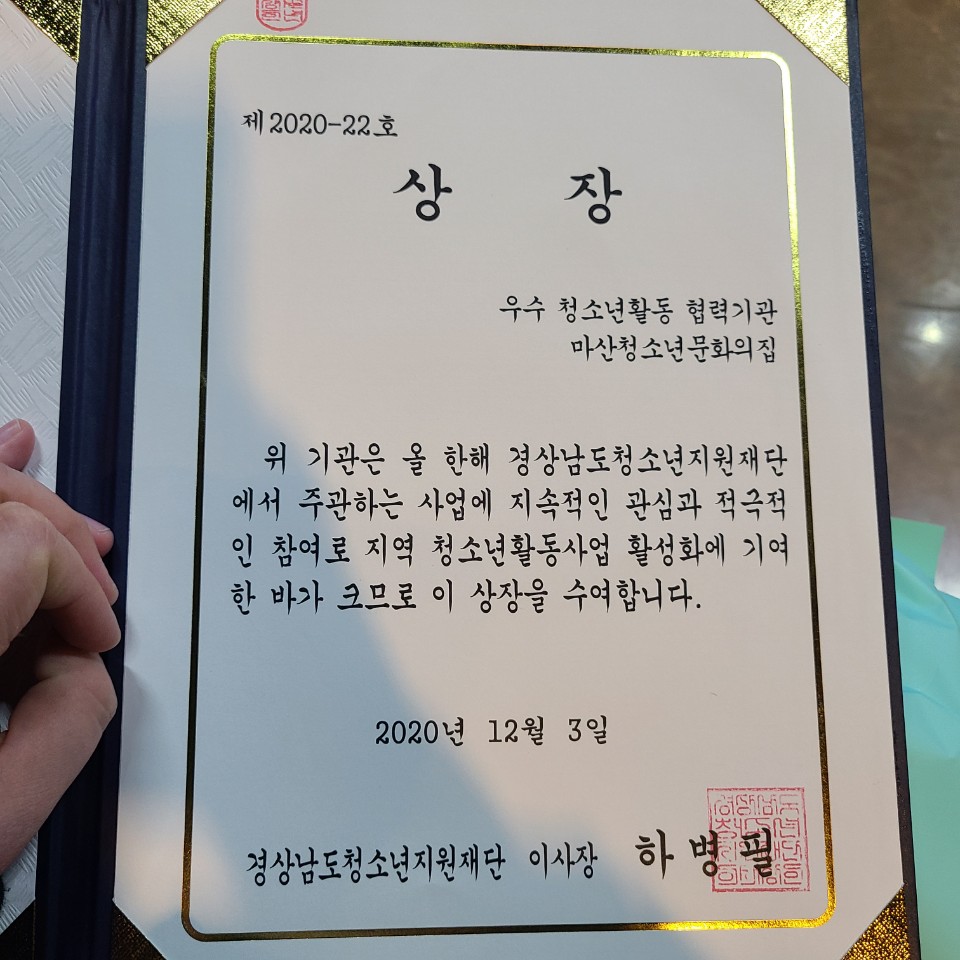 제2020-22호
상 장
우수 청소년활동 협력기관
마산청소년문화의집
위 기관은 올 한해 경상남도청소년지원재단
에서 주관하는 사업에 지속적인 관심과 적극적
인 참여로 지역 청소년활동사업 활성화에 기여
한 바가 크므로 이 상장을 수여합니다.
2020년 12월 3일
경상남도청소년지원재단 이사장 하병필